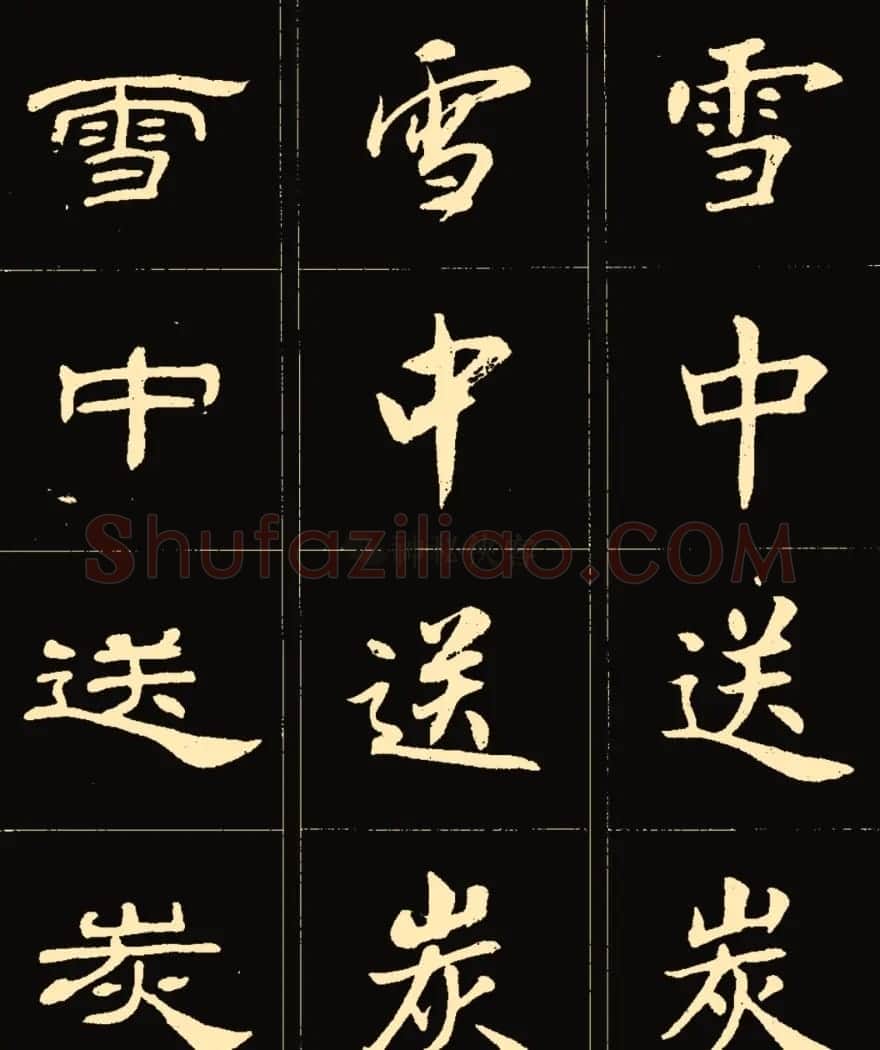 雪 雪 雪
中 中 中
Shufaziliao.COM
送 送 送
炭 炭 炭